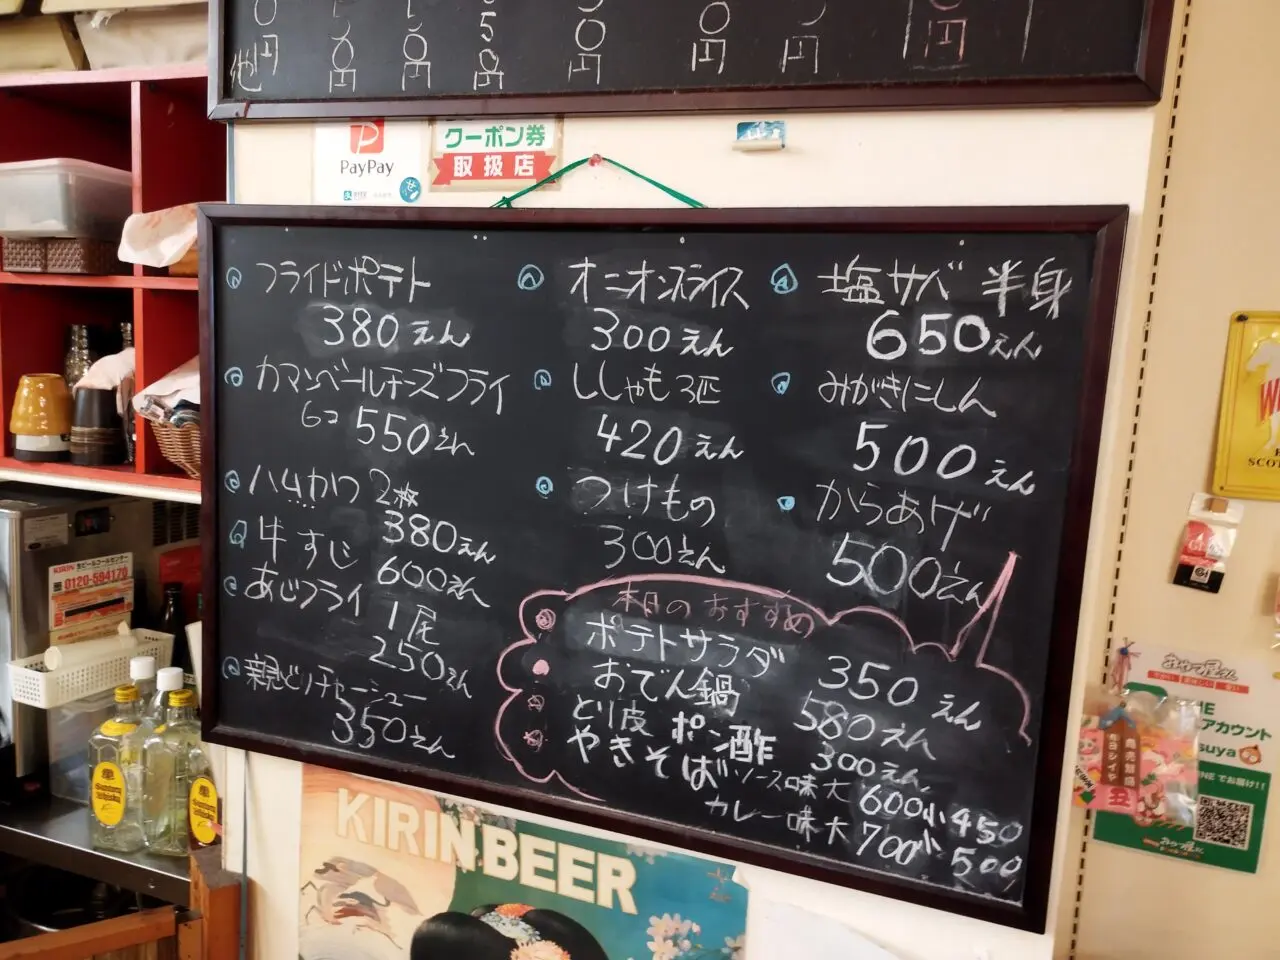 円
他
50円
50円
50円
0円
0円
円
円
PayPay
クーポン券
取扱店
フライドポテト
380えん
カマンベールチーズフライ
6コ 550えん
ハムカツ 2枚
380えん
牛すじ
600えん
あじフライ 1尾
250えん
親どりチャーシュー
350えん
オニオンスライス
300えん
ししゃも3匹
420えん
つけもの
300えん
塩サバ 半身
650えん
みがきにしん
500えん
からあげ
500えん
本日のおすすめ
ポテトサラダ 350えん
おでん鍋 580えん
とり皮 ポン酢 300えん
やきそば ソース味 大600 小450
カレー味 大700 小500
KIRIN
0120-594170
KIRIN BEER
LINE
アカウント